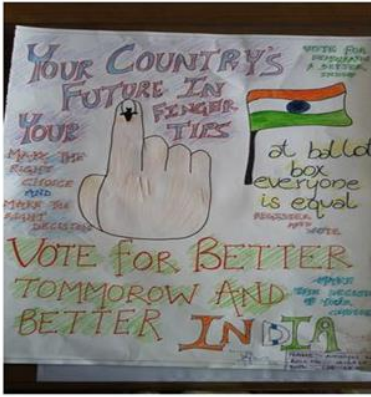 YOUR COUNTRY'S
FUTURE IN
YOUR FINGER
TIPS
VOTE FOR
DEMOCRACY
A BETTER
INDIA
MAKE THE
RIGHT
CHOICE
AND
MAKE THE
RIGHT
DECISION
at ballot
box
everyone
is equal
REGISTER
AND
VOTE
VOTE for BETTER
TOMMOROW AND
BETTER INDIA
MAKE
THE DECISION
OF YOUR